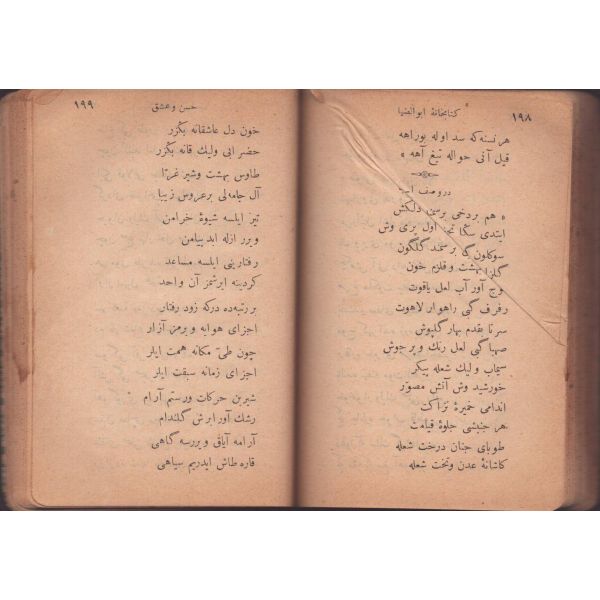 ١٩٨
كتابخانهٔ ابوالضيا
هر نسنه كه سد اوله بوراهه
قيل آنى حواله تيغ آهه
دروصف اسب
هم بردخى برسمن دلكش
ايتدى سكا تحفه اول پرى وش
سوكلون كبى برسمند گلگون
گلزار بهشت و قلزم خون
موج آور آب لعل ياقوت
رفرف كبى راهوار لاهوت
سرتا بقدم بهار گلپوش
صهبا كبى لعل رنك و پرجوش
سيماب وليك شعله پيكر
خورشيد وش آتش مصوّر
اندامى خميرهٔ نزاكت
هر جنبشى جلوهٔ قيامت
طوباى جنان درخت شعله
كاشانهٔ عدن وتخت شعله
١٩٩
حسن وعشق
خون دل عاشقانه بكزر
خضر ابى وليك قانه بكزر
طاوس بهشت وشير غرّا
آل جامه لى برعروس زيبا
تيز ايلسه شيوهٔ خرامن
ويرر ازله ابد پيامن
رفتارينى ايلسه مساعد
كردينه ايرشمز آن واحد
بر رتبه ده دركه زود رفتار
اجزاى هوايه ويرمز آزار
چون طىّ مكانه همت ايلر
اجزاى زمانه سبقت ايلر
شيرين حركات ورستم آرام
رشك آور ابرش گلندام
آرامه آياق ويررسه گاهى
قاره طاش ايدريم سياهى